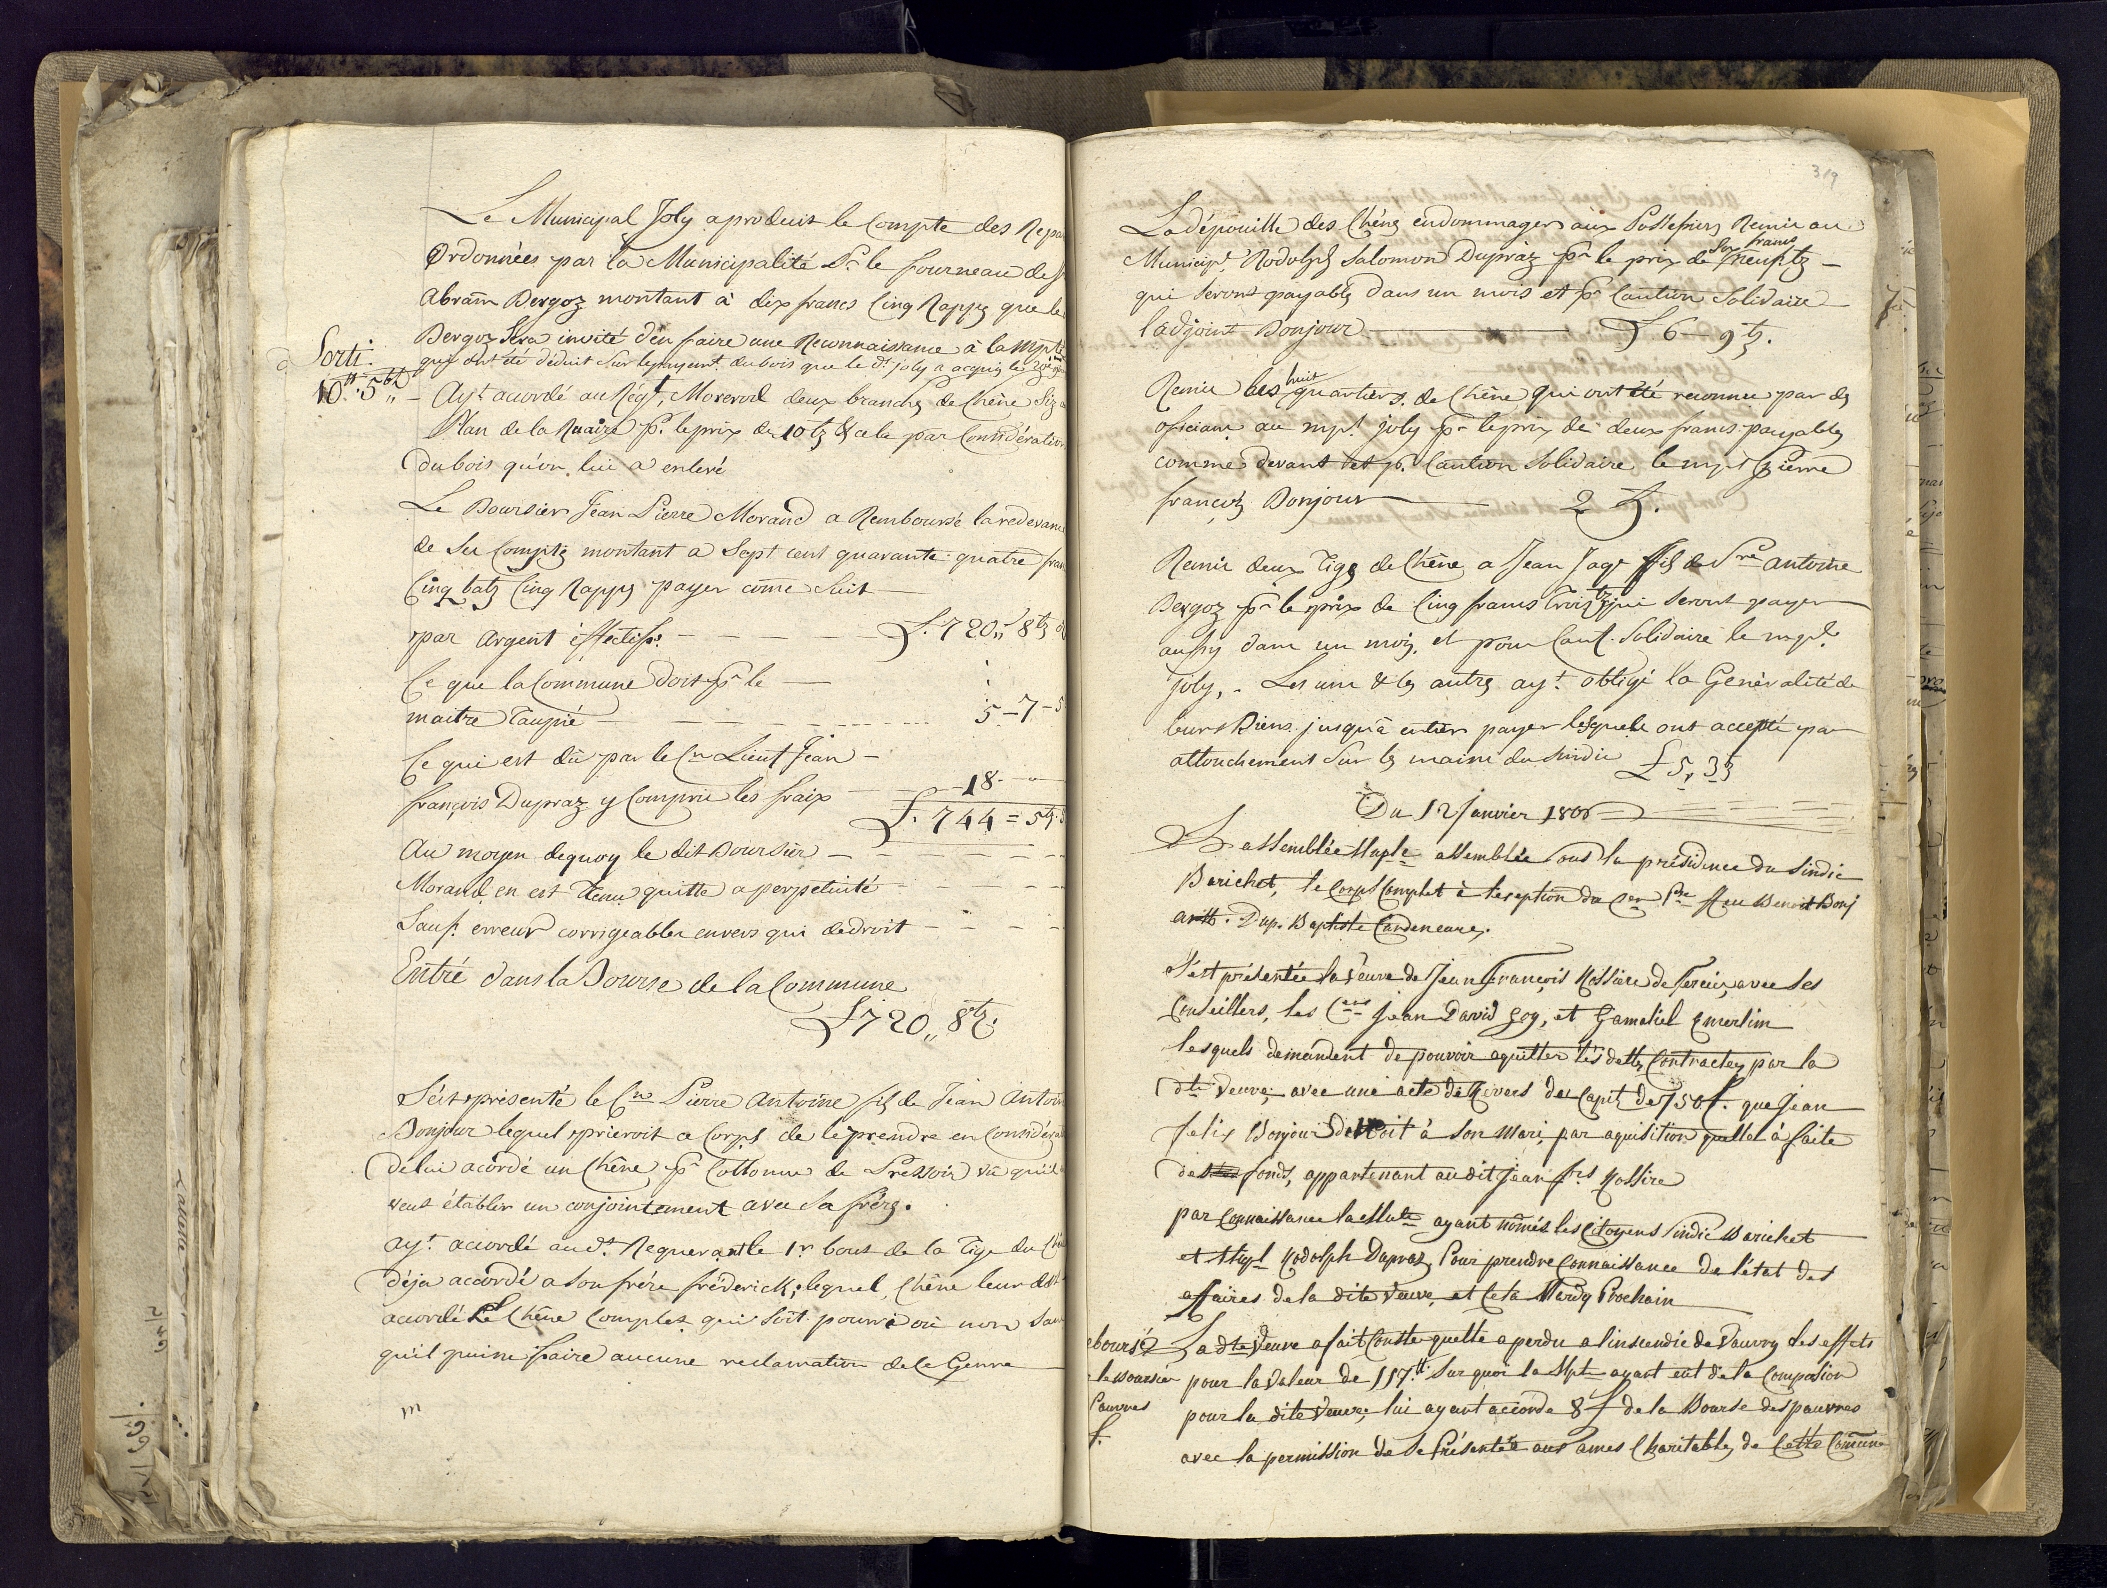 Le Municipal Joly a produit le Compte des Repa
Ordonnées par la Municipalité Pr. le fourneau de
Abram Bergoz montant à dix francs Cinq Rappes que le
Bergoz Sera invité d'en faire une Reconnaissance à la Mpté
Sorti
qui ont été déduit Sur le payemt. du bois que le dt. joly a acquis
10 " 5 bz
Ayt. accordé au Régt. Morerod deux branches de Chêne
Plan de la pr. le prix de 10 bz & cela par Considération
du bois qu'on lui a enlevé
Le Boursier Jean Pierre Morand a Remboursé la redevance
de Ses Comptes montant a Sept cent quarante quatre fran
Cinq batz Cinq Rappes payer come Suit
par Argent éffectifs. £. 720 ,, 8 bz
Ce que la Commune doit pr. le
maitre Taupié 5 - 7 - 5
Ce qui est dû par le Cn. Lieut Jean
françois Dupraz y Compris les fraix 18 -
£. 744 = 5 bz. 5
Au moyen dequoy le dit Boursier
Morand en est tenu quitte a perpetuité
Sauf. erreur corrigeables envers qui de droit
Entré dans la Bourse de la Commune
£ 720 ,, 8 bz.
S'est présenté le Cn Pierre Antoine fils de Jean Antoin
Bonjour lequel prieroit ce Corps de le prendre en Considéra
de lui acordé un Chêne pr. Collonne de Pressoir vû qu'il
veut établir un conjointement avec Sa frérs.
ayt. accordé au dt. Requerant le 1r. bout de la Tige du
déja accordé a Son frére fréderick, lequel Chêne leur
accordé Chêne Complet qui Soit pourri ou non San
qu'il puisse faire aucune reclamation de Ce Genre
m
319
La dépouille des Chêns endommager aux Remis au
Six francs
Municipl. Rodolph Salomon Dupraz pr. le prix de neuf bz
qui Seront payables dans un mois et pr. Caution Solidaire
l'adjoint Bonjour £ 6 - 9 bz.
huit
Remis les quartiers de Chêne qui ont été reconnu par des
officiant au mpl. joly pr. le prix de deux francs payables
comme devant et pr. Caution Solidaire le mpl pierre
françois Bonjour 2 £.
Remis deux Tiges de Chêne a Jean Jaqe ffils de antoine
Bergoz pr. le prix de Cinq francs Trois bz qui Seront payer
aussy dans un mois, et pour Caut. Solidaire le mpl.
Joly, . Les uns & les autres ayt. obligé la Généralité de
leurs Biens jusqu'à entier payer lesquels ont accepté par
attouchement Sur les mains du Sindic £ 5, 3 bz
Du 12 Janvier 1806
L'assemblée Muple assemblée Sous la présidence du Sindic
Barichet, le Corps Complet à l'exeption du Cen Pre ffeu Benoit Bonj
Dup. Baptiste Cardeneaux.
S'est présentée la Veuve de Jean François Rossire de avec Ses
Conseillers, les Cens Jean David Goy, et Gamaliel Emerlin
lesquels demandent de pouvoir aquitter les dettes Contractez par la
dte Veuve, avec une acte de Revers de Capit. de 750 f. que Jean
felix Bonjour devoit à Son Mari, par aquisition quelle à faite
des fonds, appartenant au dit Jean frs Rossire
par Connaissance la Mute ayant nômés les Citoyens Sindic Barichet
et Mupl Rodolph Dupraz, Pour prendre Connaissance de l'état des
affaires de la dite Veuve, et Cela Mardy Prochain
eboursé
La dte Veuve a fait Conster quelle a perdu a l'inscendie de Vauvry Les effets
le Boursié
pour la Valeur de 117. tt Sur quoi la Mpte ayant eut de la Compasion
Pauvres
pour la dite Veuve, lui ayant accordé 8 f de la Bourse des pauvres
f.
avec la permission de Se Présenter aux ames Charitables de Cette Comune